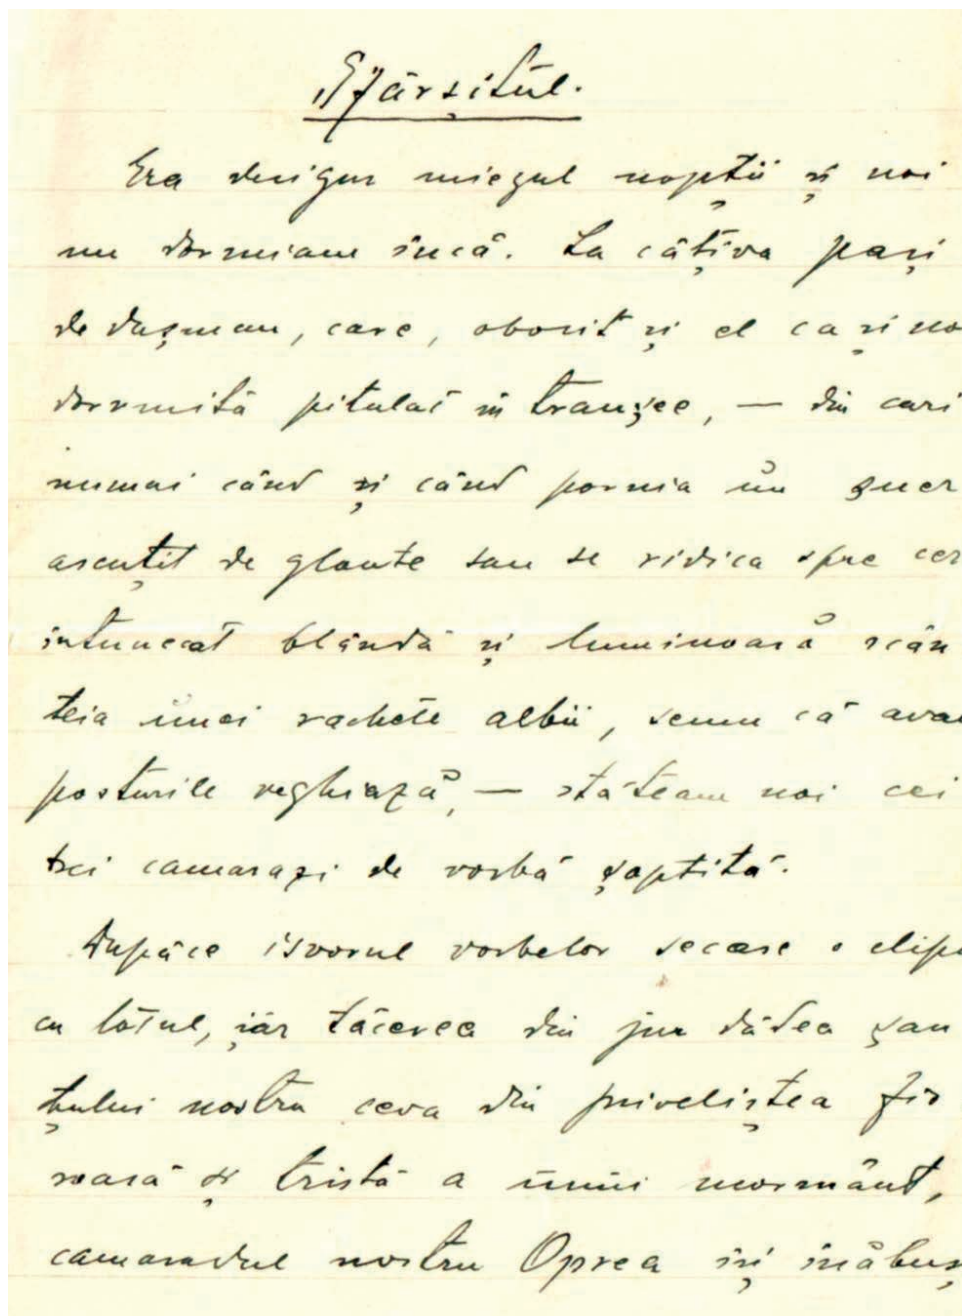 „Sfârșitul.
Era desigur miezul nopții și noi
nu dormiam încă. La câțiva pași
de dușman, care, oborit și el ca și no
dormită pitulat în tranșee, — din cari
numai când și când pornia un șuer
ascuțit de gloante sau se ridica spre cer
intunecat blândă și luminoasă scân
teia unei rachete albii, semn că avan
posturile veghiază, — stăteam noi cei
trei camarazi de vorbă șoptită.
Dupăce isvorul vorbelor secase o clipă
cu totul, iar tăcerea din jur dădea șan
țului nostru ceva din priveliștea fio
roasă și tristă a unui mormânt,
camaradul nostru Oprea iși inăbuș